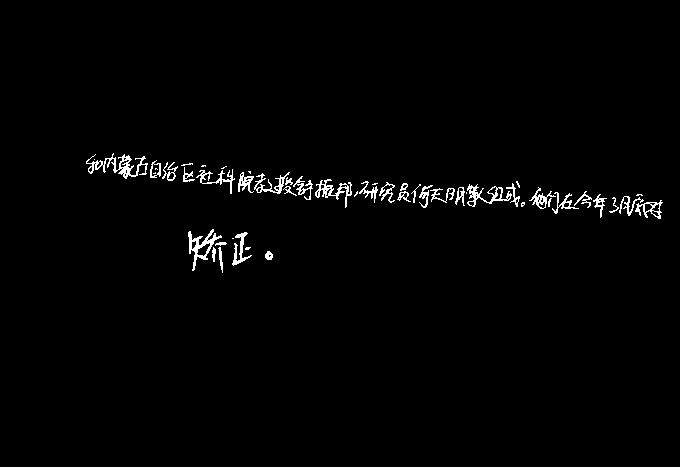 和内蒙古自治区社科院教授舒振邦,研究员何天明等组成。他们在今年3月底对
矫正。